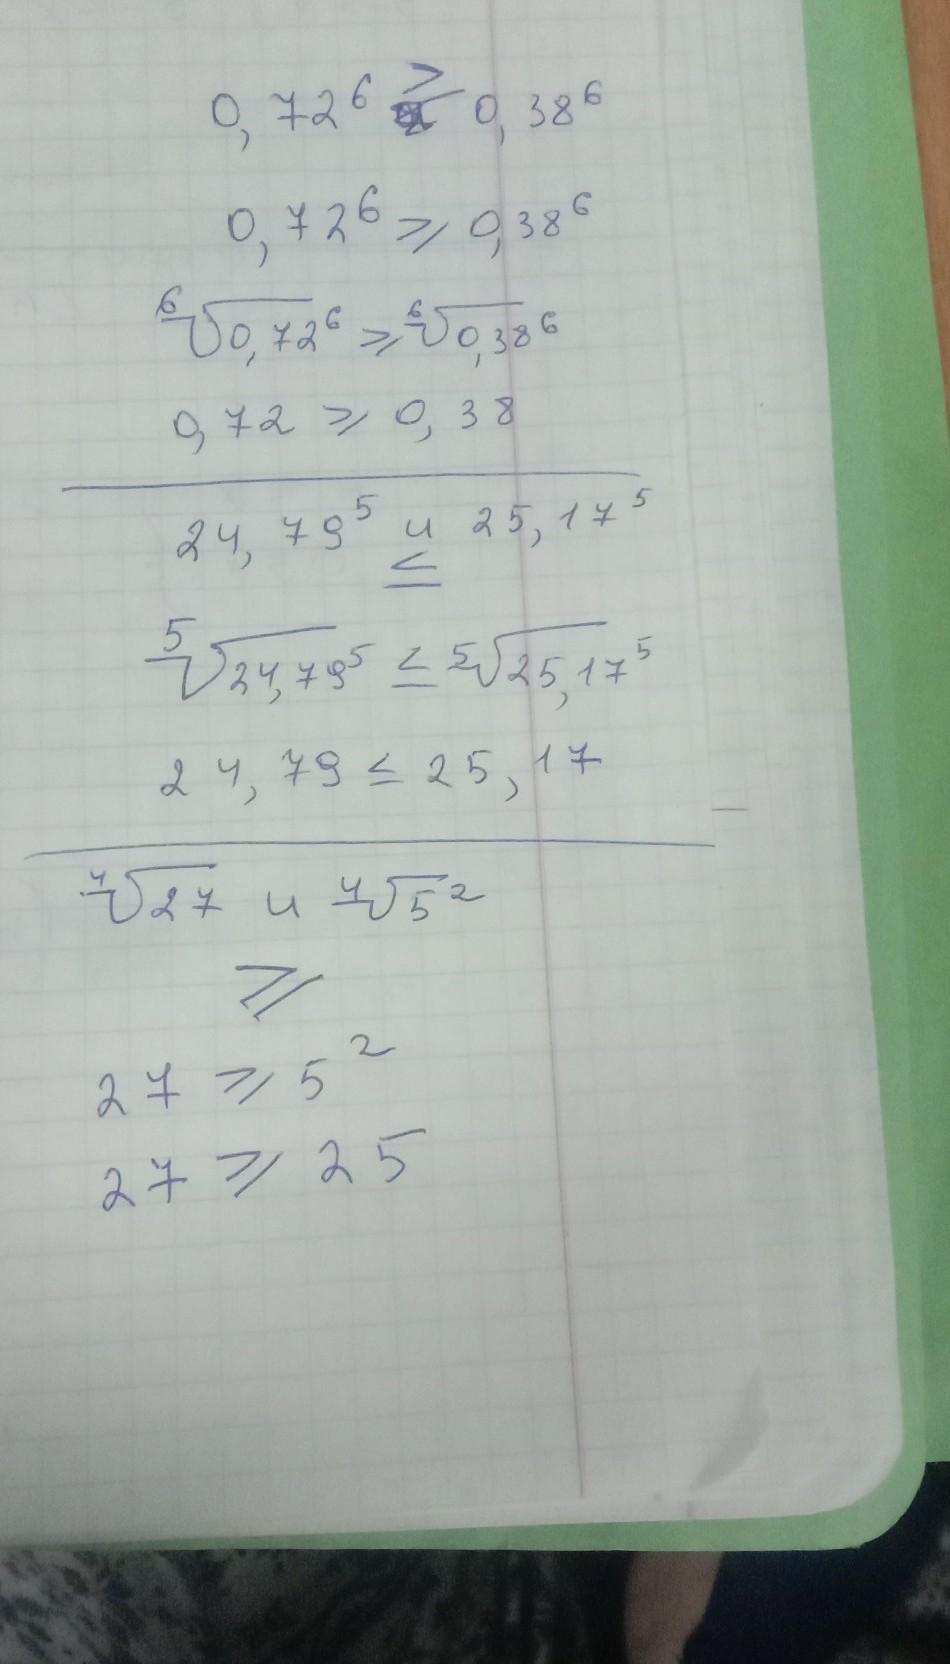 0,72⁶ ≥ 0,38⁶
0,72⁶ ≥ 0,38⁶
⁶√0,72⁶ ≥ ⁶√0,38⁶
0,72 ≥ 0,38
24,79⁵ и 25,17⁵
≤
⁵√24,79⁵ ≤ ⁵√25,17⁵
24,79 ≤ 25,17
⁴√27 и ⁴√5²
≥
27 ≥ 5²
27 ≥ 25